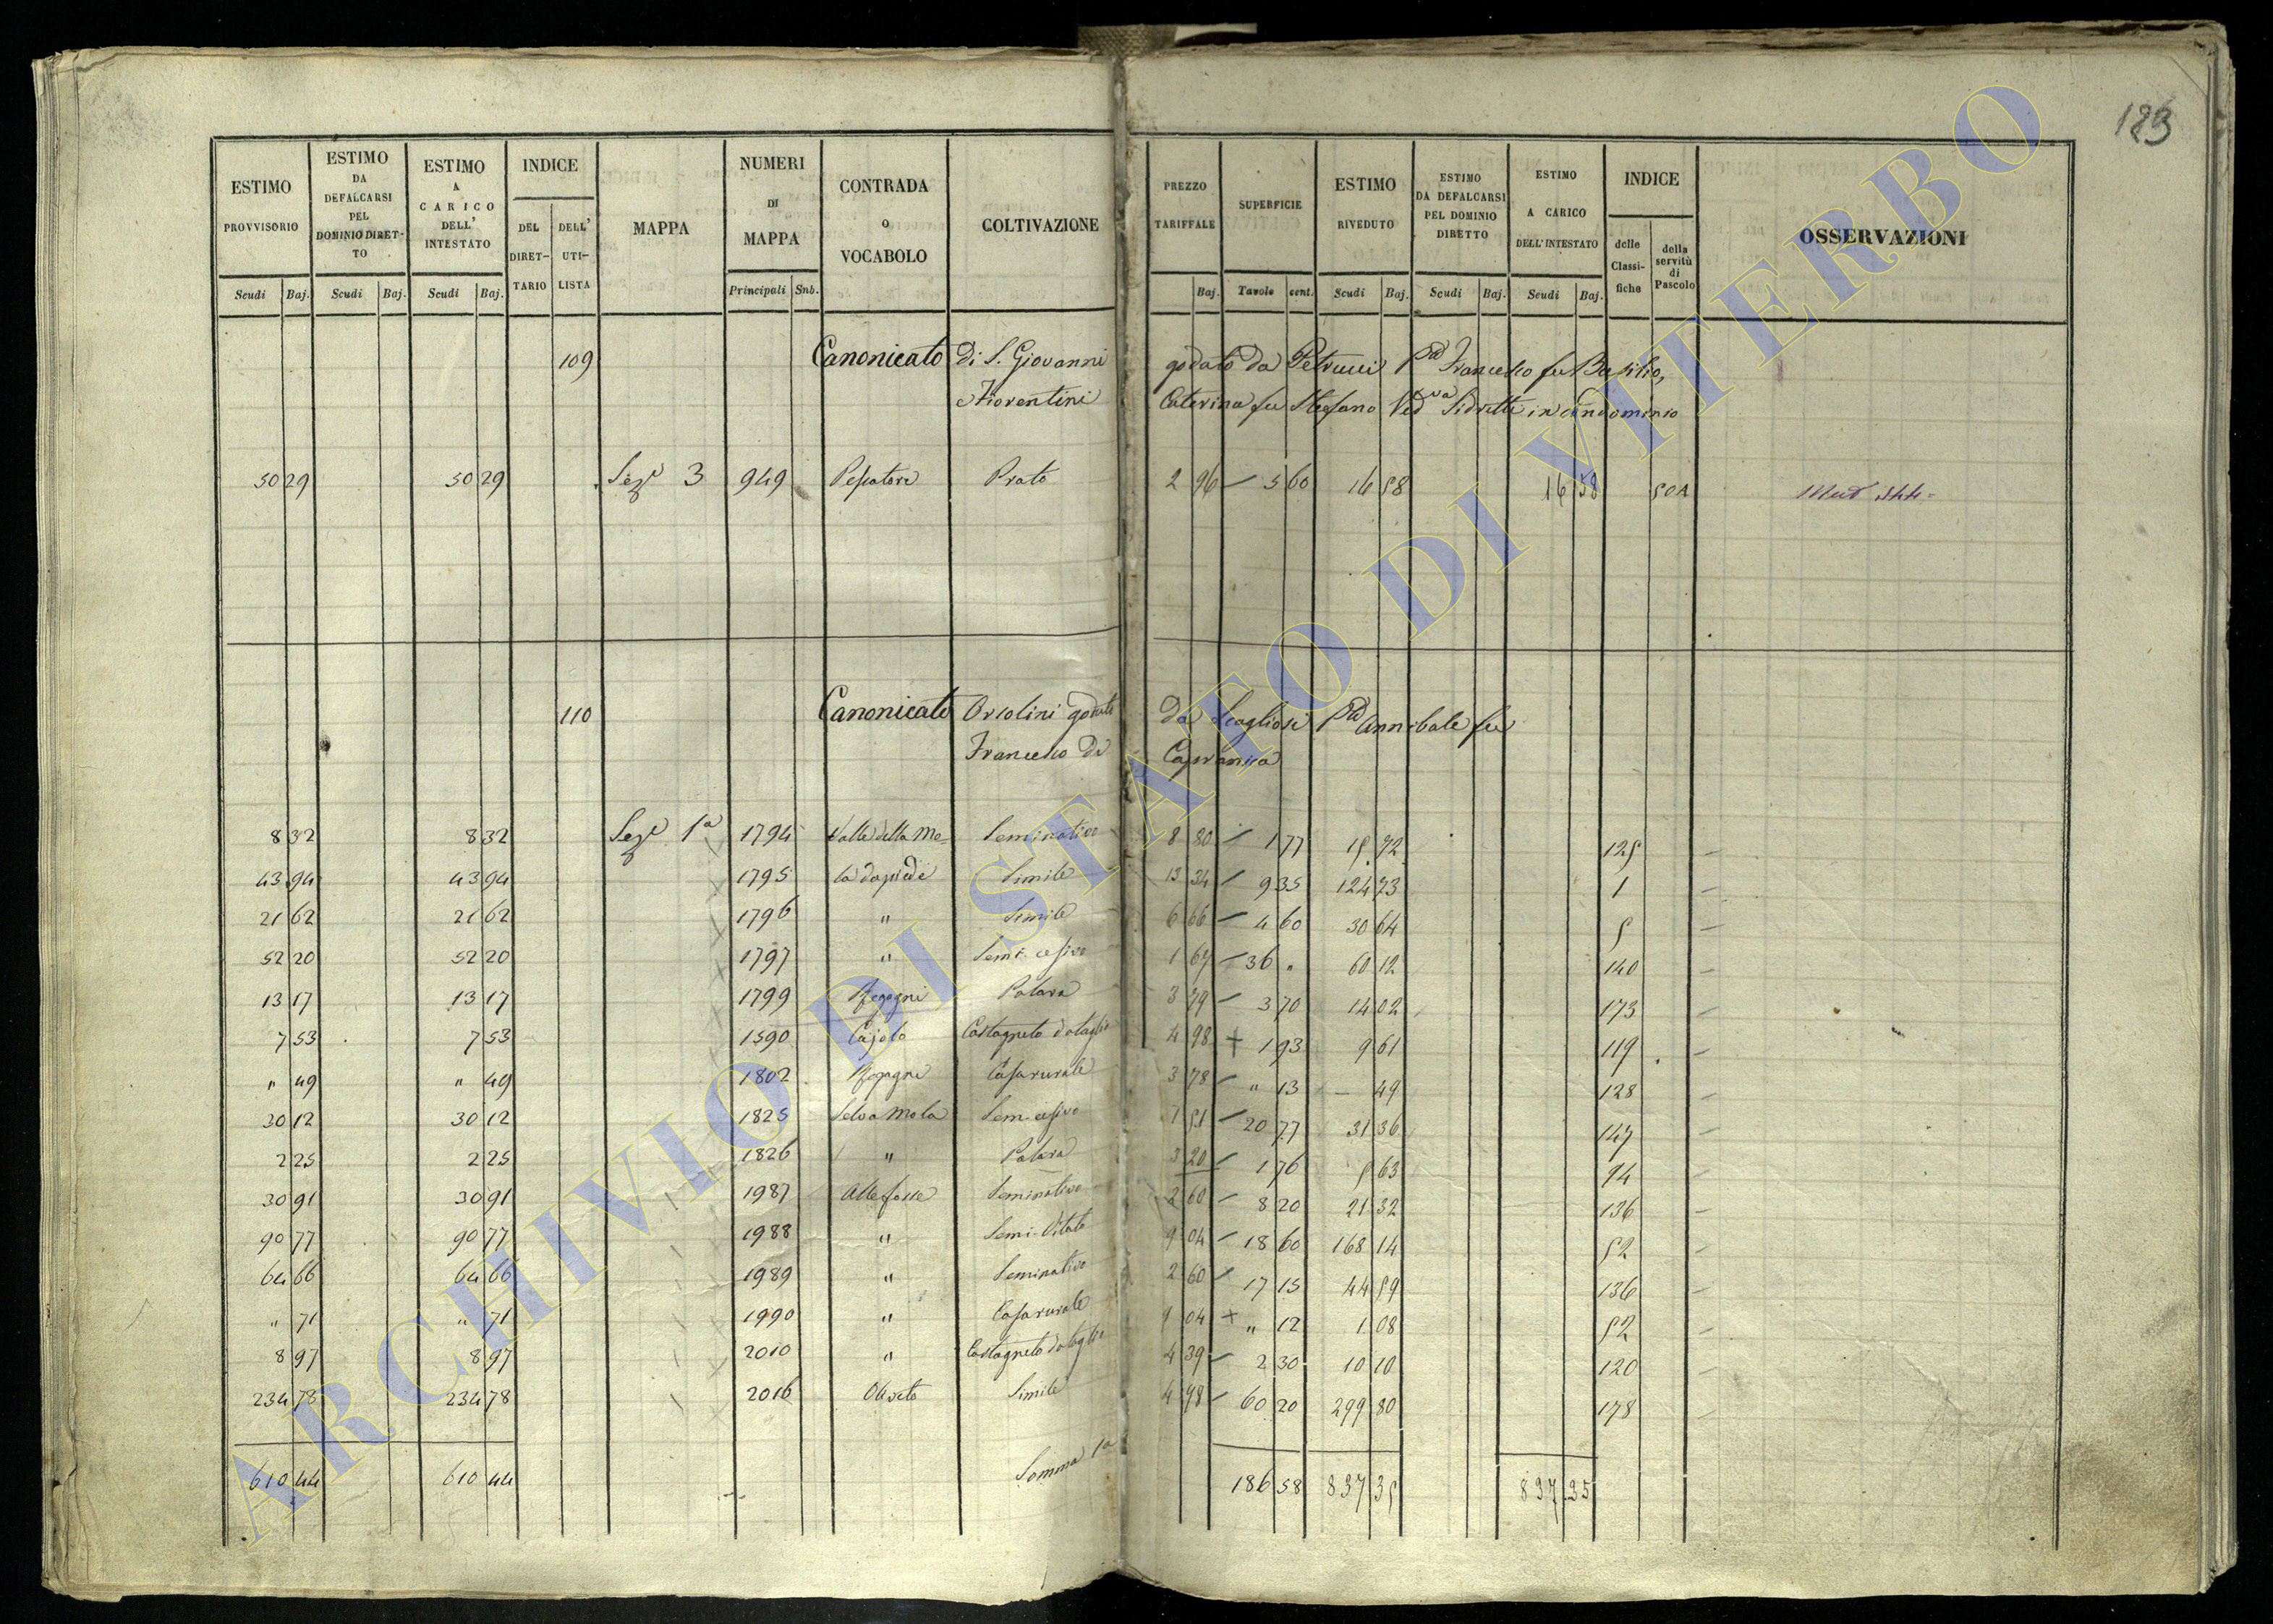 183
ESTIMO PROVVISORIO Scudi Baj.
ESTIMO DA DEFALCARSI PEL DOMINIO DIRET-TO Scudi Baj.
ESTIMO A CARICO DELL' INTESTATO Scudi Baj.
INDICE DEL DIRET-TARIO DELL' UTI-LISTA
MAPPA
NUMERI DI MAPPA Principali Sub.
CONTRADA o VOCABOLO
COLTIVAZIONE
PREZZO TARIFFALE Baj.
SUPERFICIE Tavole cent.
ESTIMO RIVEDUTO Scudi Baj.
ESTIMO DA DEFALCARSI PEL DOMINIO DIRETTO Scudi Baj.
ESTIMO A CARICO DELL'INTESTATO Scudi Baj.
INDICE delle Classi-fiche della servitù di Pascolo
OSSERVAZIONI
109 Canonicato di S. Giovanni godato da Petrucci Pd Francesco fu Basilio,
Fiorentini Caterina fu Stefano Vedva in condominio
50 29 50 29 Seze 3 949 Pescatore Prato 2 96 5 60 16 58 16 58 501
110 Canonicato Orsolini goduto da Scagliosi Pd Annibale fu
Francesco da Capranica
8 32 8 32 Seze 1a 1794 Valle della Mo- Seminativo 8 80 1 77 15 72 125
43 94 43 94 1795 la dapiede Simile 13 34 9 35 124 73 1
21 62 21 62 1796 " Simile 6 66 4 60 30 64 5
52 20 52 20 1797 " Semi-cesivo 1 67 36 " 60 12 140
13 17 13 17 1799 Fegagni Palara 3 79 3 70 14 02 173
7 53 7 53 1590 Cajolo Castagneto da taglio 4 98 1 93 9 61 119
" 49 " 49 1802 Fegagni Casa rurale 3 78 " 13 — 49 128
30 12 30 12 1825 Selva Mola Sem-cesivo 1 51 20 77 31 36 147
2 25 2 25 1826 " Palara 3 20 1 76 5 63 94
30 91 30 91 1987 Alle fosse Seminativo 2 60 8 20 21 32 136
90 77 90 77 1988 " Semi-Vitato 9 04 18 60 168 14 52
64 66 64 66 1989 " Seminativo 2 60 17 15 44 59 136
" 71 " 71 1990 " Casa rurale 9 04 " 12 1 08 52
8 97 8 97 2010 " Castagneto da taglio 4 39 2 30 10 10 120
234 78 234 78 2016 Oliveto Simile 4 98 60 20 299 80 178
610 44 610 44 Somma 1a 186 58 837 35 837 35
ARCHIVIO DI STATO DI VITERBO